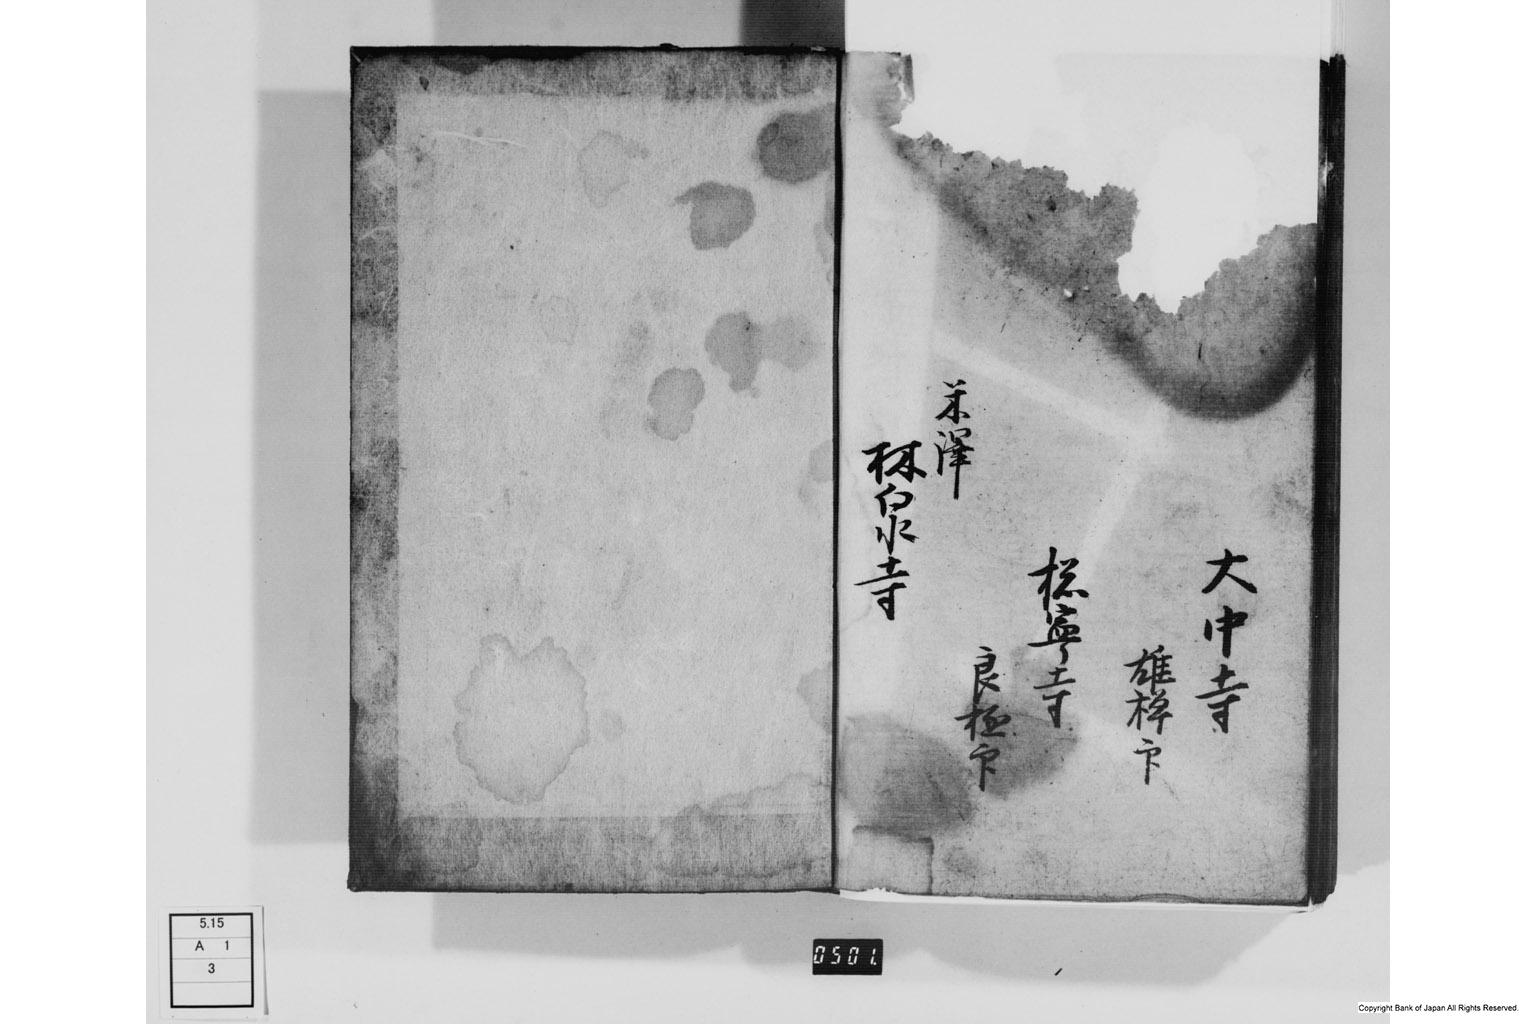 大中寺
雄禅代
總寧寺
良極代
米澤
林泉寺
5.15
A 1
3
0501.
Copyright Bank of Japan All Rights Reserved.